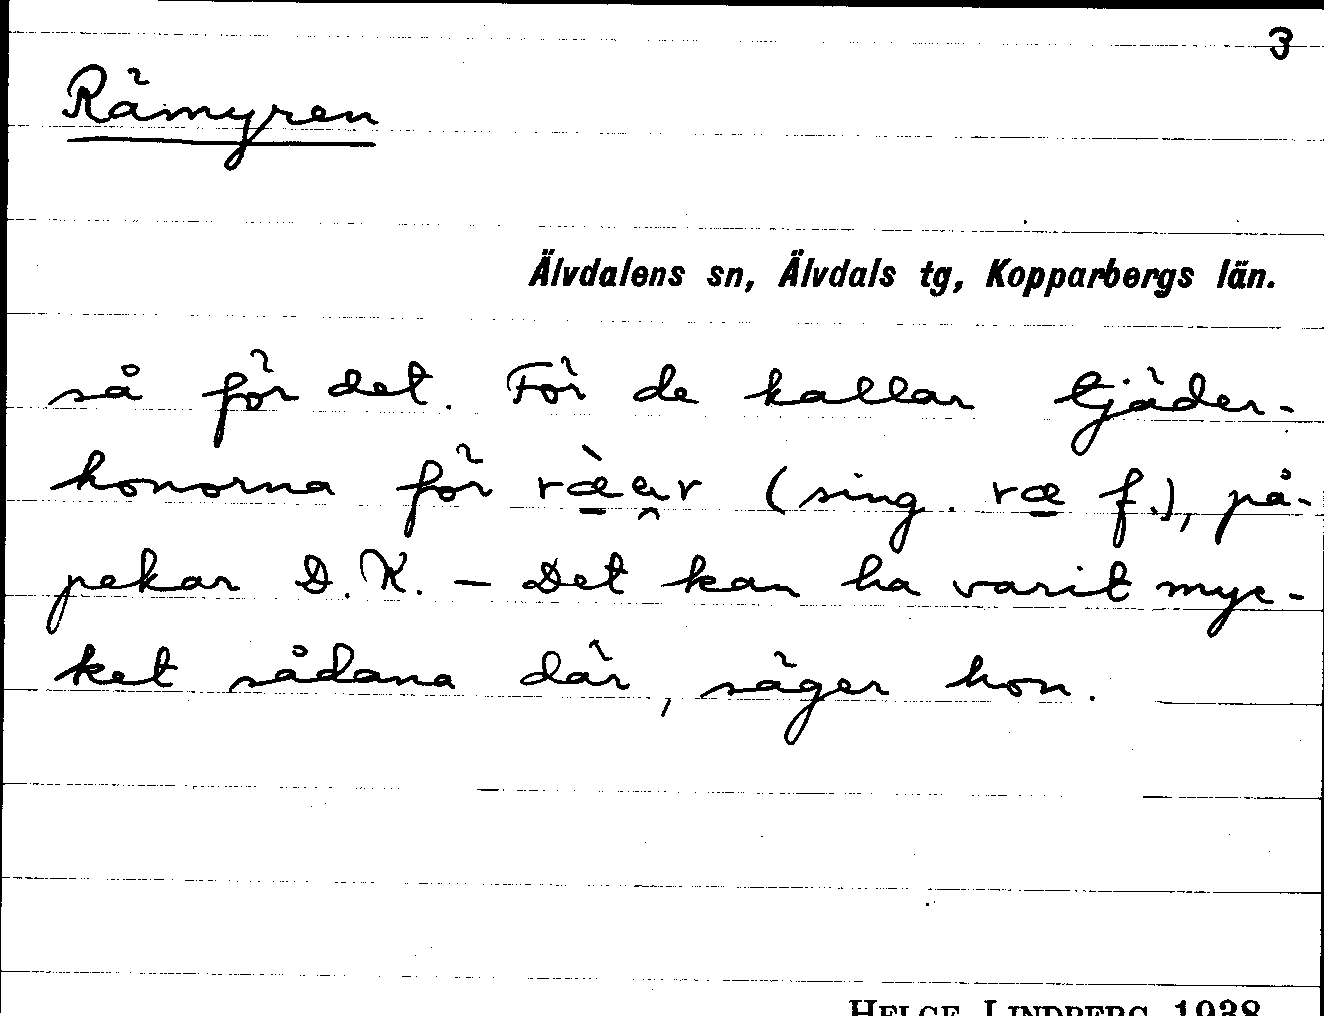 3
Rämyren
Älvdalens sn, Älvdals tg, Kopparbergs län.
så för det. För de kallar tjäder-
honorna för ræ̠̀ a̭r (sing. ræ̠ f.), på-
pekar D. K. – Det kan ha varit myc-
ket sådana där, säger hon.
HELGE LINDBERG 1938